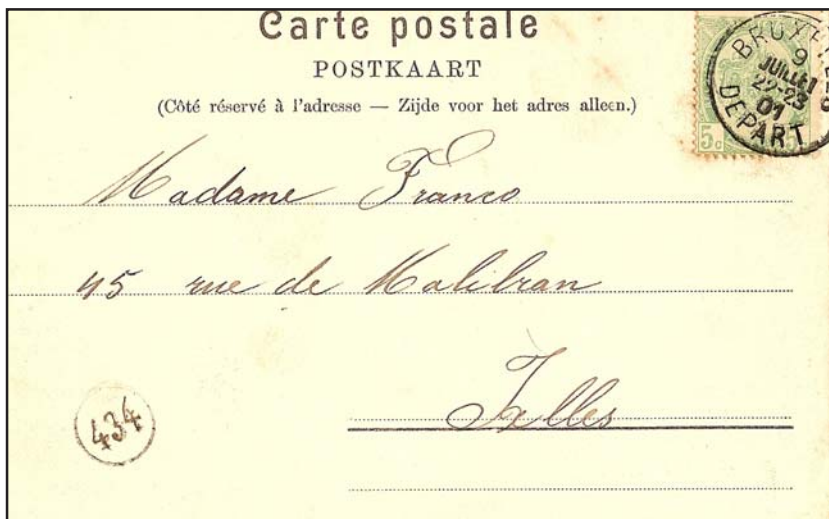 Carte postale
POSTKAART
(Côté réservé à l'adresse — Zijde voor het adres alleen.)
BRUXELLES
9
JUILLET
22-23
01
DEPART
5c
Madame Franco
45 rue de Malibran
Ixelles
434